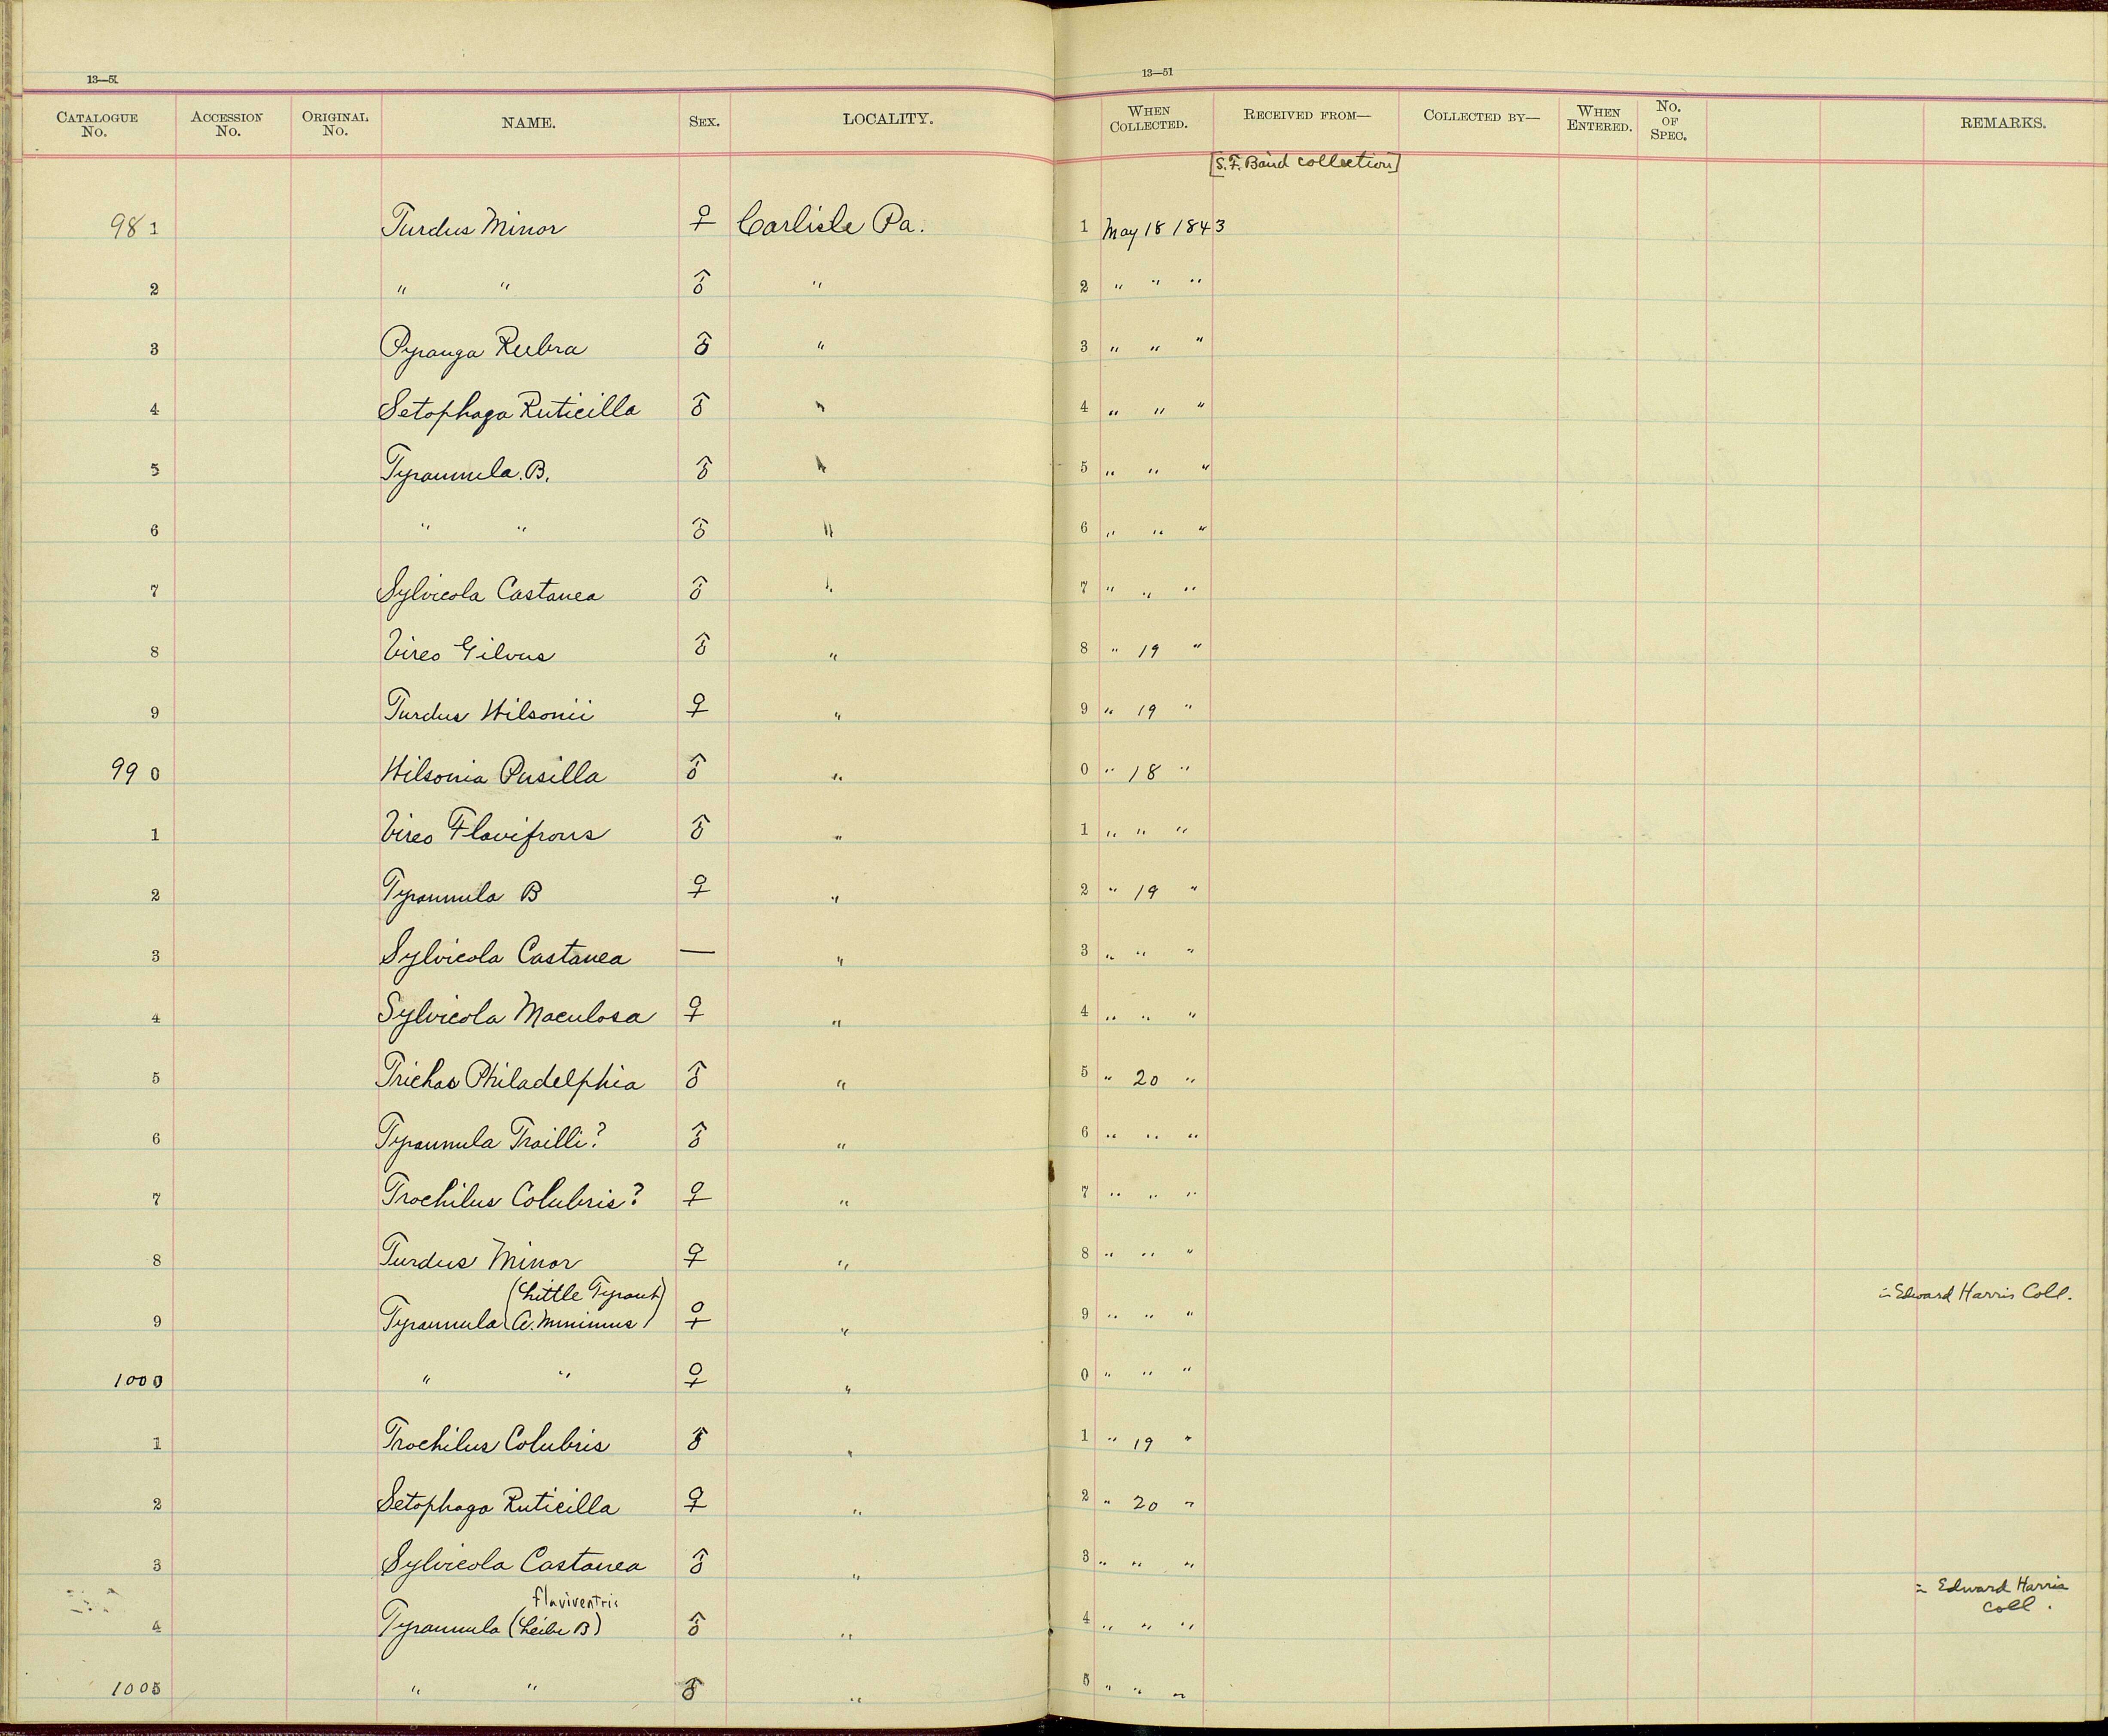 13—51 13—51
CATALOGUE No. ACCESSION No. ORIGINAL No. NAME. SEX. LOCALITY. WHEN COLLECTED. RECEIVED FROM— COLLECTED BY— WHEN ENTERED. No. OF SPEC. REMARKS.
[S. F. Baird collection]
981 Turdus Minor ♀ Carlisle Pa. 1 May 18 1843
2 " " ♂ " 2 " " "
3 Pyranga Rubra ♂ " 3 " " "
4 Setophaga Ruticilla ♂ " 4 " " "
5 Tyrannula. B. ♂ " 5 " " "
6 " " ♂ " 6 " " "
7 Sylvicola Castanea ♂ " 7 " " "
8 Vireo Gilvus ♂ " 8 " 19 "
9 Turdus Wilsonii ♀ " 9 " 19 "
990 Wilsonia Pusilla ♂ " 0 " 18 "
1 Vireo Flavifrons ♂ " 1 " " "
2 Tyrannula B ♀ " 2 " 19 "
3 Sylvicola Castanea — " 3 " " "
4 Sylvicola Maculosa ♀ " 4 " " "
5 Trichas Philadelphia ♂ " 5 " 20 "
6 Tyrannula Trailli? ♂ " 6 " " "
7 Trochilus Colubris? ♀ " 7 " " "
8 Turdus Minor ♀ " 8 " " "
(Little Tyrant) in Edward Harris Coll.
9 Tyrannula (A. Minimus) ♀ " 9 " " "
1000 " " ♀ " 0 " " "
1 Trochilus Colubris ♂ " 1 " 19 "
2 Setophaga Ruticilla ♀ " 2 " 20 "
3 Sylvicola Castanea ♂ " 3 " " "
flaviventris in Edward Harris
coll.
4 Tyrannula ( B) ♂ " 4 " " "
1005 " " ♂ " 5 " " "